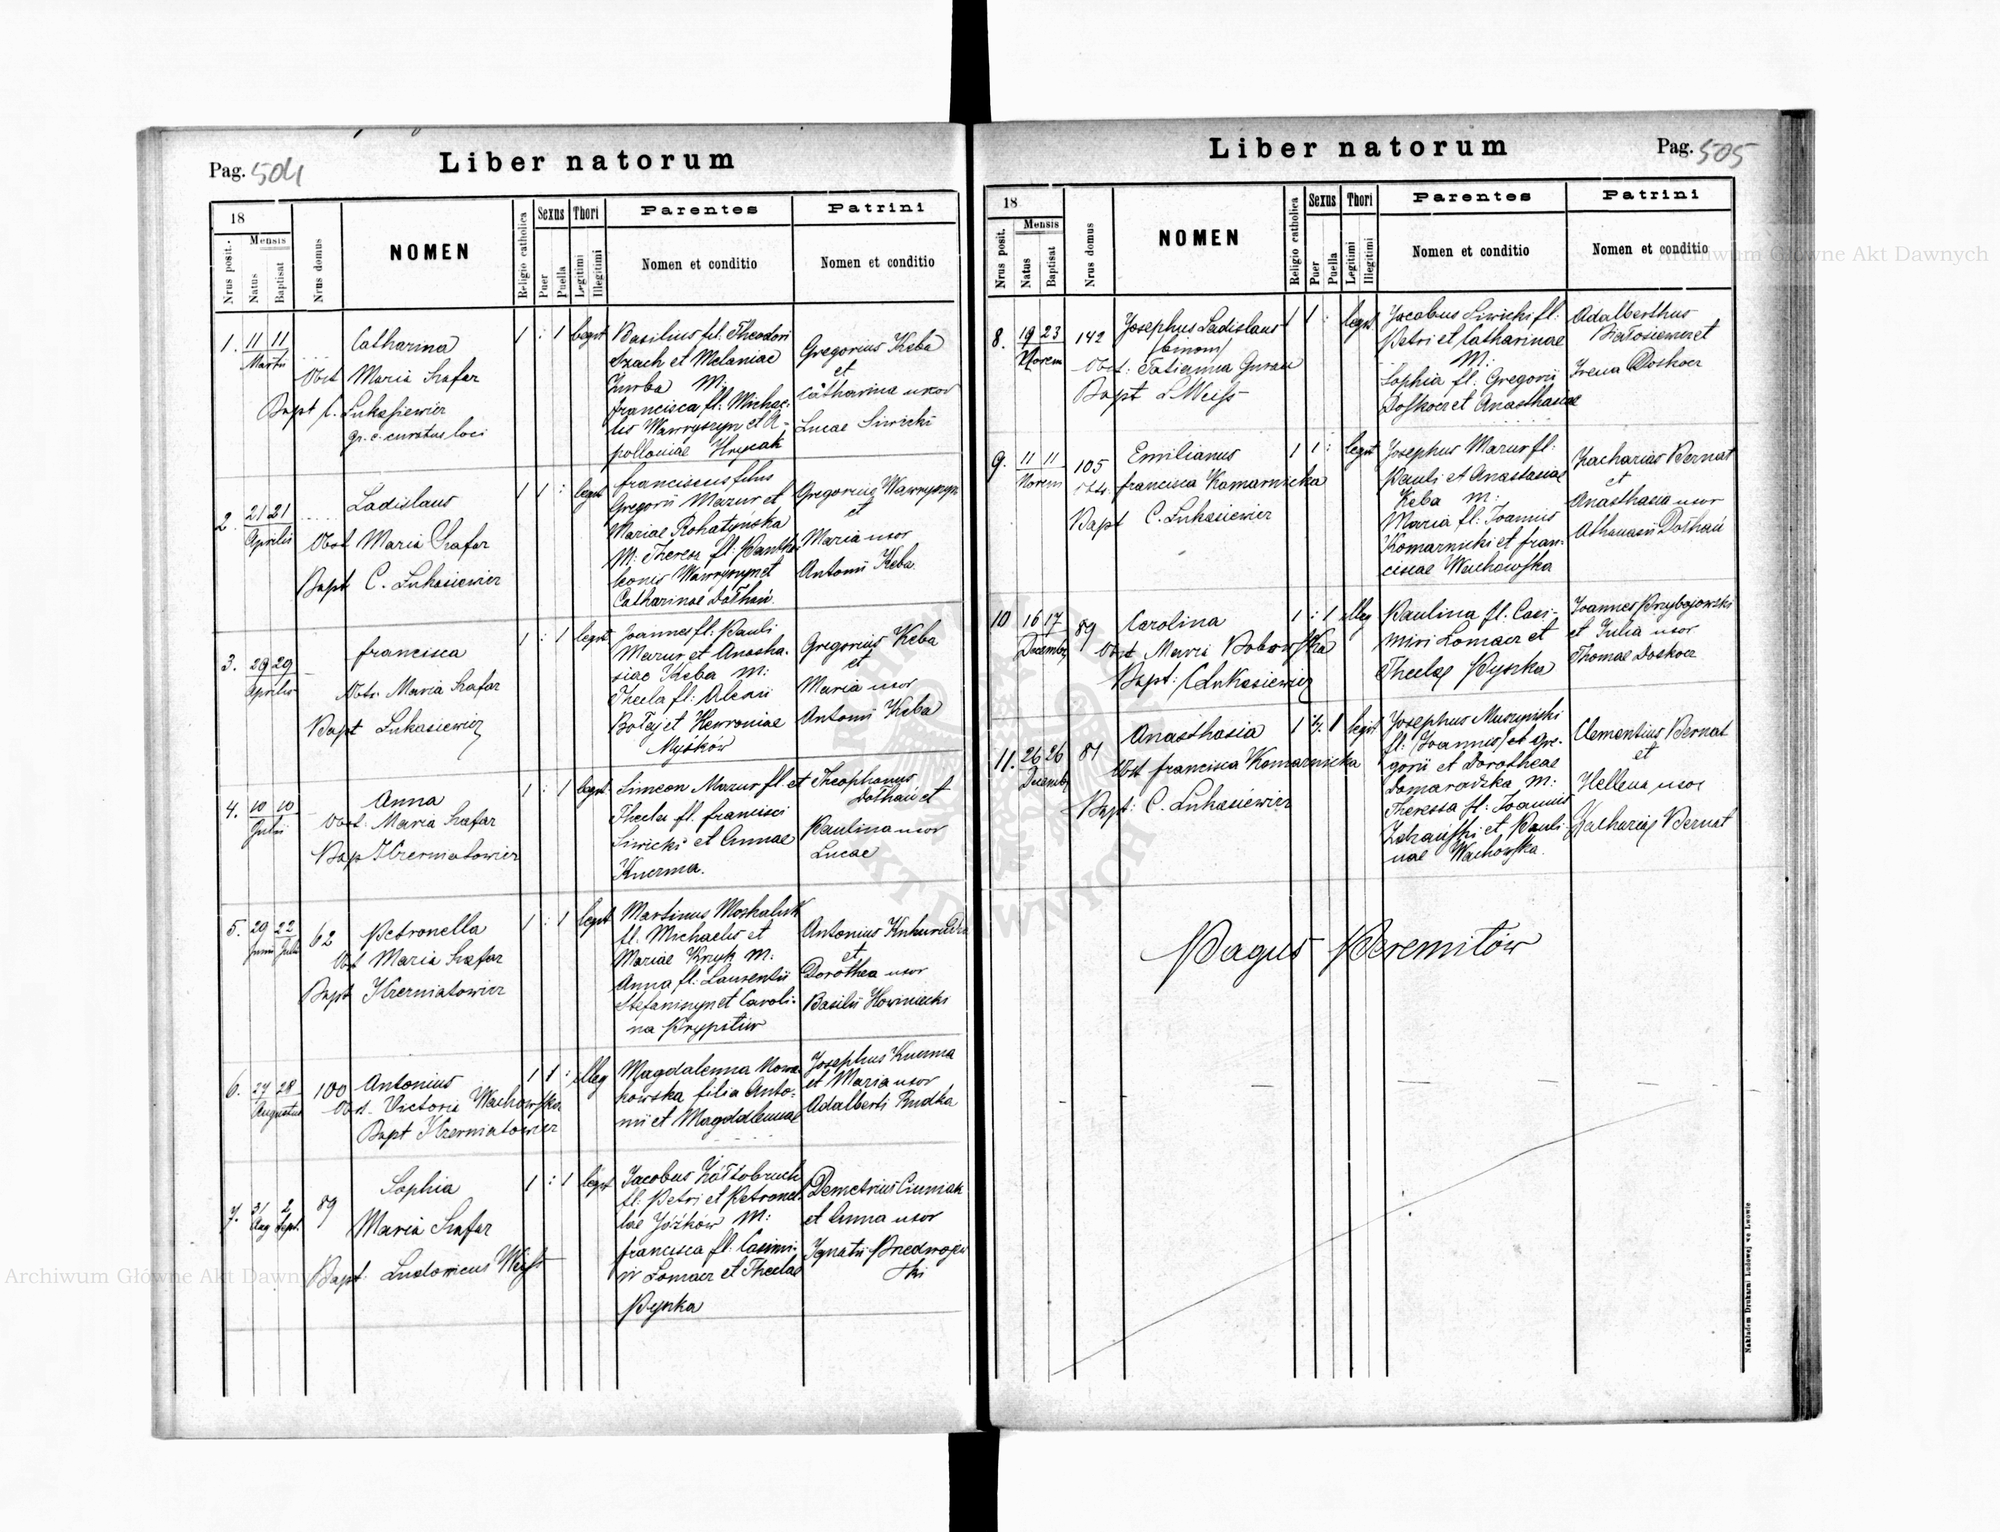 Pag. 504
Liber natorum
18
Mensis
Nrus posit.
Natus
Baptisat
Nrus domus
NOMEN
Religio catholica
Sexus
Puer
Puella
Thori
Legitimi
Illegitimi
Parentes
Nomen et conditio
Patrini
Nomen et conditio
1. 11 11
Martii
Catharina
Obst Maria Szafar
Bapt Lukasiewicz
gr. c. curatus loci
1 : 1 legit
Basilius fil. Theodori
Szach et Melaniae
M:
Francisca fl: Michae-
lis Wawryszyn et A-
polloniae Hrycak
Gregorius Keba
et
Catharina uxor
Lucae Siwicki
2. 21 21
Aprilis
Ladislaus
Obst Maria Szafar
Bapt C. Lukasiewicz
1 1 : legit
Franciscus filius
Gregorii Mazur et
Mariae Rohatyńska
M: Theresa fl: Pantha-
leonis Wawryszyn et
Catharinae Dołhań
Gregorius Wawryszyn
et
Maria uxor
Antonii Keba
3. 29 29
Aprilis
Francisca
Obst. Maria Szafar
Bapt Lukasiewicz
1 : 1 legit
Joannes fl: Pauli
Mazur et Anastha-
siae Keba M:
Thecla fl: Alexii
Bołaj et Hewroniae
Myśków
Gregorius Keba
et
Maria uxor
Antonii Keba
4. 10 10
Julii
Anna
Obst: Maria Szafar
Bap Krzemiatowicz
1 : 1 legit
Simeon Mazur fl. et
Thecla fl. Francisci
Siwicki et Annae
Kuzma.
Theophanus
Dołhań et
Paulina uxor
Lucae
5. 29 22
Junii Julii
62
Petronella
Obst Maria Szafar
Bapt Krzemiatowicz
1 : 1 legit
Martinus Moskaluk
fl. Michaelis et
Mariae Kryk M:
Anna fl: Laurentii
Stefaniszyn et Caroli-
na
Antonius
et
Dorothea uxor
Basilii Howniecki
6. 27 28
Augustus
100
Antonius
Obst. Victoria Wachowska
Bapt Krzemiatowicz
1 1 : illeg
Magdalenna Nowa-
kowska filia Anto-
nii et Magdalennae
Josephus Kuzma
et Maria uxor
Adalberti Rudka
7. 31 2
Aug Sept.
89
Sophia
Maria Szafar
Bapt: Ludovicus Weiss
1 : 1 legit
Jacobus Żółtobruch
fl: Petri et Petronel-
lae Jóźków M:
Francisca fl: Casimi-
ri Lomacz et Theclae
Pyszka
Demetrius Cimiak
et Anna uxor
Ignatii
ski
Pag. 505
Liber natorum
18
Mensis
Nrus posit.
Natus
Baptisat
Nrus domus
NOMEN
Religio catholica
Sexus
Puer
Puella
Thori
Legitimi
Illegitimi
Parentes
Nomen et conditio
Patrini
Nomen et conditio
8. 19 23
Novem
142
Josephus Ladislaus
/binom/
Obst: Tatianna
Bapt L Weiss
1 1 : legit
Jacobus Siwicki fl:
Petri et Catharinae
M:
Sophia fl: Gregorii
Doskocz et Anasthasiae
Adalberthus
Białosiewicz et
Irena Doskocz
9. 11 11
Novem
105
Emilianus
Obst. Francisca Komarnicka
Bapt C. Lukasiewicz
1 1 : legit
Josephus Mazur fl:
Pauli et Anastasiae
Keba M:
Maria fl: Joannis
Komarnicki et Fran-
ciscae Wachowska
Zacharias Bernat
et
Anasthasia uxor
Athanasii Dołhań
10 16 17
Decembr
89
Carolina
Obst Maria Bobowska
Bapt: C Lukasiewicz
1 : 1 illeg
Paulina fl. Casi-
miri Lomacz et
Theclae Pyszka
Joannes Przybojowski
et Julia uxor
Thomae Doskocz
11. 26 26
Decembr
81
Anasthasia
Obst Francisca Komarnicka
Bapt: C. Lukasiewicz
1 : 1 legit
Josephus Muszyński
fl: /Joannis/ et Gre-
gorii et Dorotheae
Domaradzka M:
Theressa fl: Joannis
et Pauli-
nae Wachowska.
Clementius Bernat
et
Hellena uxor
Zachariae Bernat
Pagus Peremitów
Nakładem Drukarni Ludowej we Lwowie
Archiwum Główne Akt Dawnych
Archiwum Główne Akt Dawnych